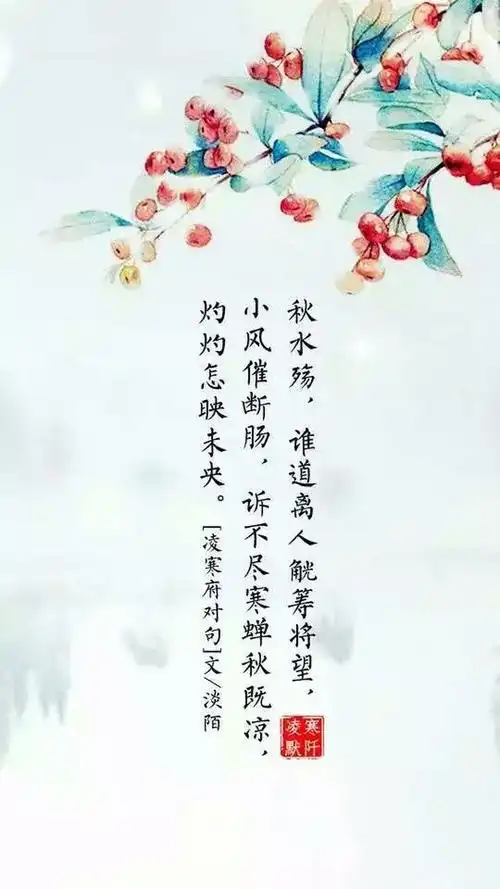 秋水殇，谁道离人觥筹将望，
小风催断肠，诉不尽寒蝉秋既凉，
灼灼怎映未央。[凌寒府对句]文/淡陌
寒阡
凌默